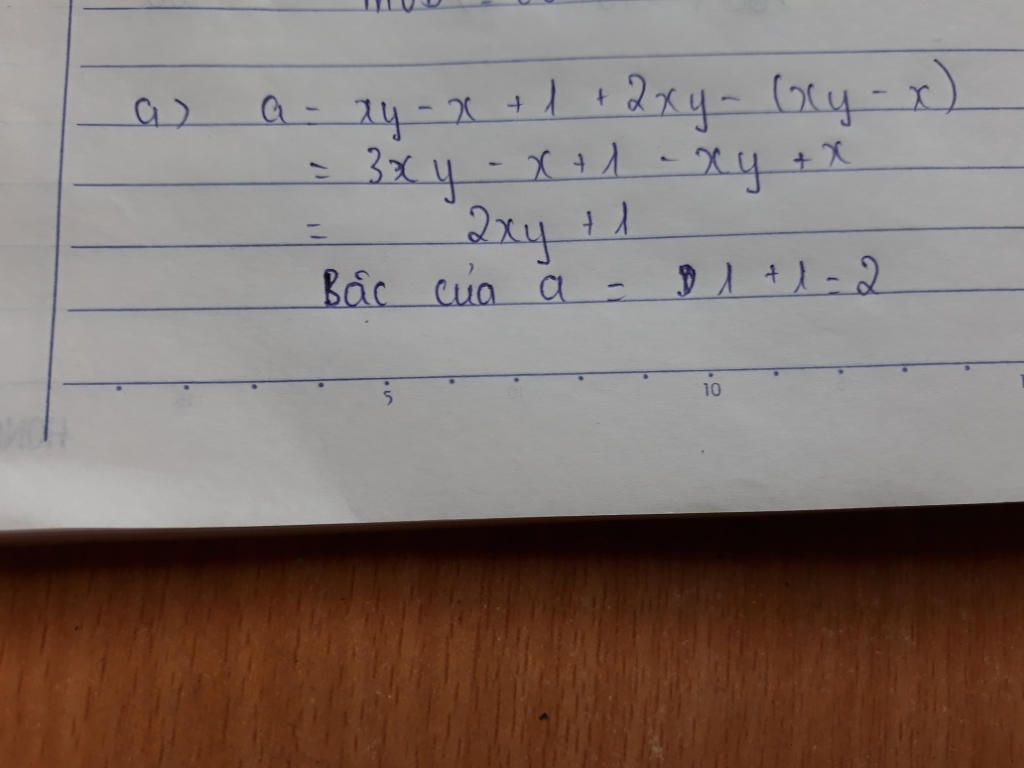 a) a = xy - x + 1 + 2xy - (xy - x)
= 3xy - x + 1 - xy + x
= 2xy + 1
Bâc của a = 1 + 1 = 2
5 10